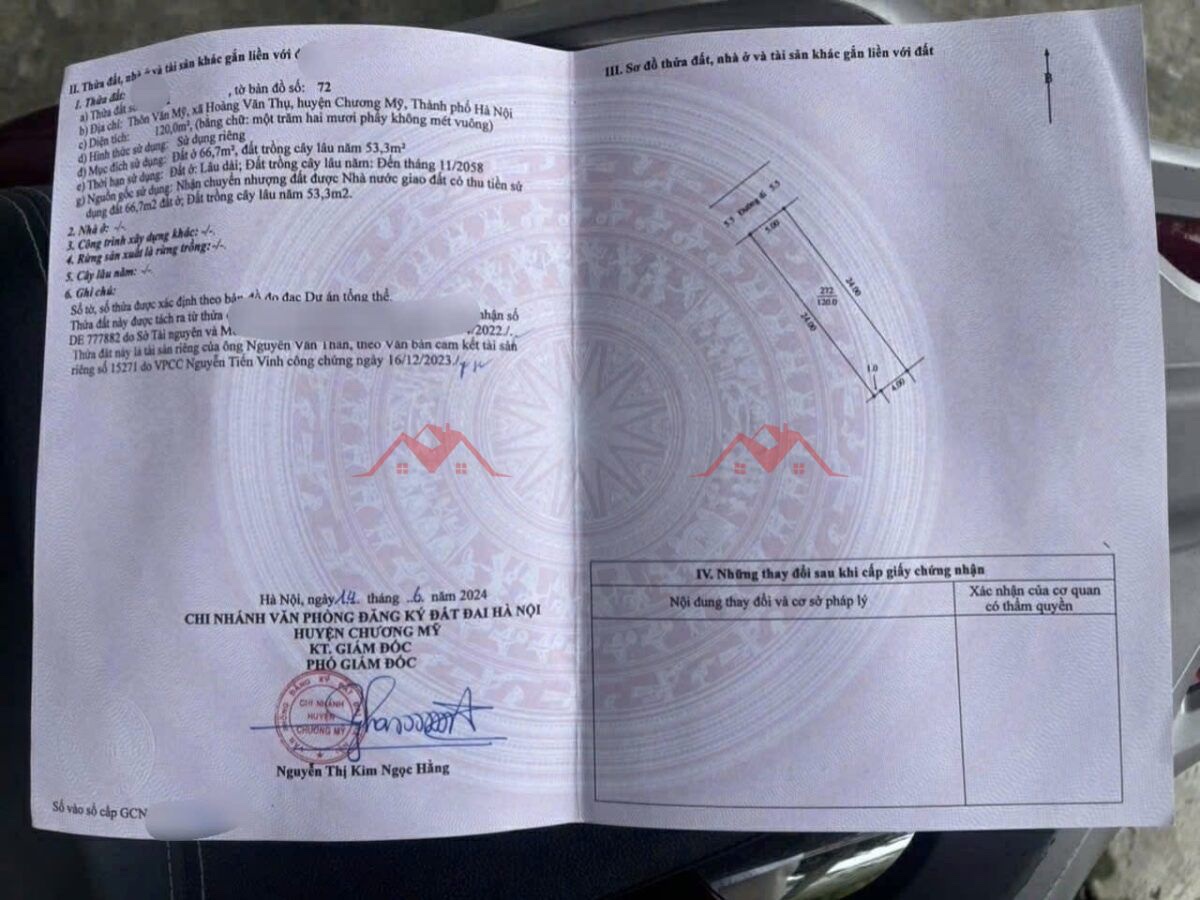 II. Thửa đất, nhà ở và tài sản khác gắn liền với đ
1. Thửa đất:
a) Thửa đất số , tờ bản đồ số: 72
b) Địa chỉ: Thôn Văn Mỹ, xã Hoàng Văn Thụ, huyện Chương Mỹ, Thành phố Hà Nội
c) Diện tích: 120,0m², (bằng chữ: một trăm hai mươi phẩy không mét vuông)
d) Hình thức sử dụng: Sử dụng riêng
đ) Mục đích sử dụng: Đất ở 66,7m², đất trồng cây lâu năm 53,3m²
e) Thời hạn sử dụng: Đất ở: Lâu dài; Đất trồng cây lâu năm: Đến tháng 11/2058
g) Nguồn gốc sử dụng: Nhận chuyển nhượng đất được Nhà nước giao đất có thu tiền sử
dụng đất 66,7m2 đất ở; Đất trồng cây lâu năm 53,3m2.
2. Nhà ở: -/-.
3. Công trình xây dựng khác: -/-.
4. Rừng sản xuất là rừng trồng: -/-.
5. Cây lâu năm: -/-
6. Ghi chú:
Số tờ, số thửa được xác định theo bản đồ đo đạc Dự án tổng thể.
Thửa đất này được tách ra từ thửa nhận số
DE 777882 do Sở Tài nguyên và M /2022./.
Thửa đất này là tài sản riêng của ông Nguyễn Văn Thân, theo Văn bản cam kết tài sản
riêng số 15271 do VPCC Nguyễn Tiến Vinh công chứng ngày 16/12/2023./
Hà Nội, ngày 14 tháng 6 năm 2024
CHI NHÁNH VĂN PHÒNG ĐĂNG KÝ ĐẤT ĐAI HÀ NỘI
HUYỆN CHƯƠNG MỸ
KT. GIÁM ĐỐC
PHÓ GIÁM ĐỐC
CHI NHÁNH
HUYỆN
CHƯƠNG MỸ
Nguyễn Thị Kim Ngọc Hằng
Số vào sổ cấp GCN
III. Sơ đồ thửa đất, nhà ở và tài sản khác gắn liền với đất
B
5.5 Đường đi 5.5
5.00
24.00
272
120.0
24.00
1.0
4.00
IV. Những thay đổi sau khi cấp giấy chứng nhận
Nội dung thay đổi và cơ sở pháp lý
Xác nhận của cơ quan
có thẩm quyền